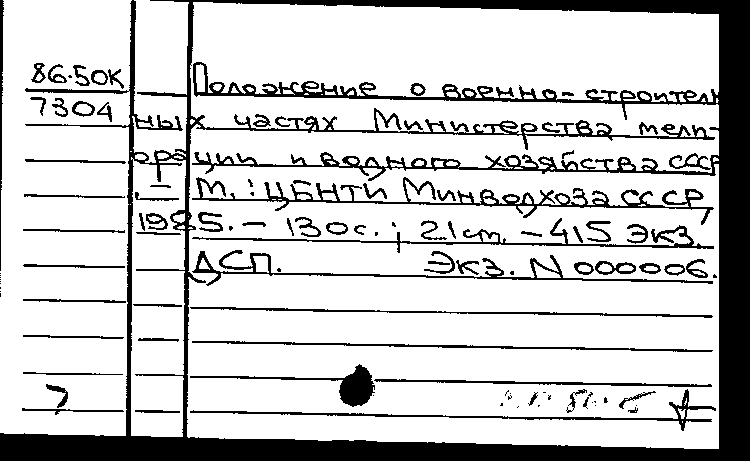 86-50К
7304
Положение о военно-строитель
ных частях Министерства мели-
орации и водного хозяйства СССР
. – М.: ЦБНТИ Минводхоза СССР,
1985. – 130с.; 21см. – 415 экз.
ДСП. Экз. N 000006.